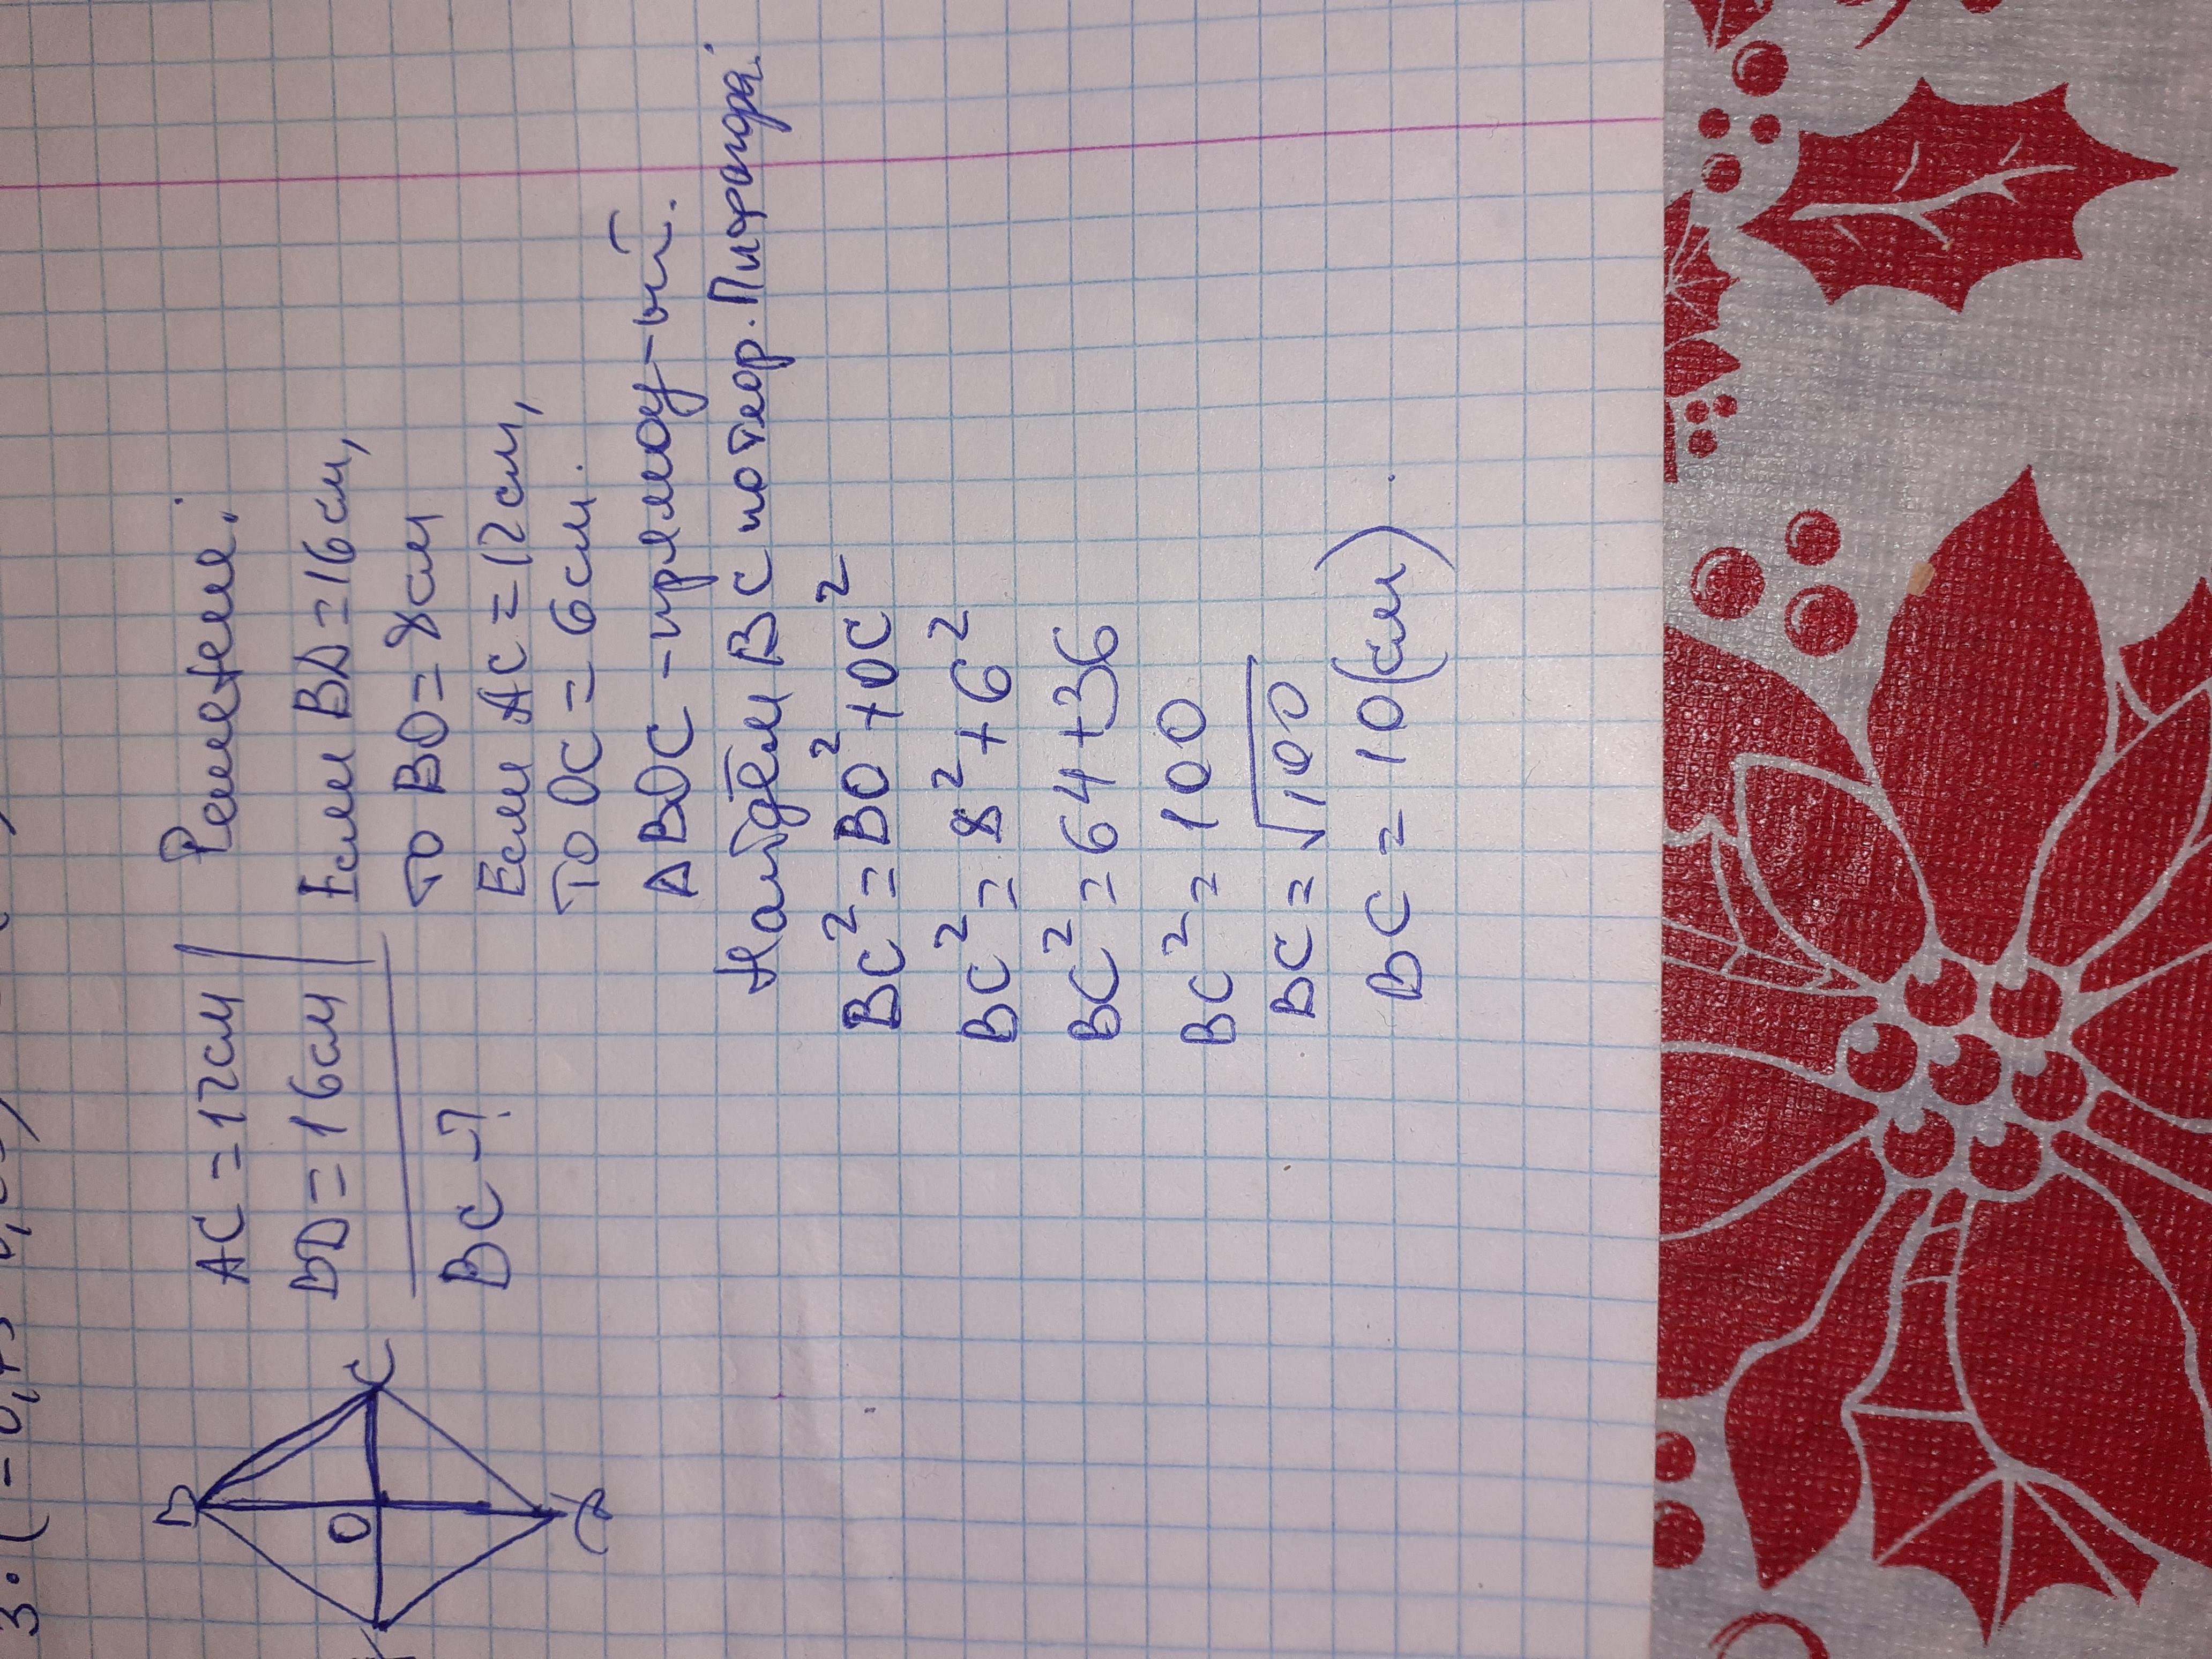 B
O
C
AC = 12см
BD = 16см
BC - ?
Решение:
Если BD = 16 см,
то BO = 8см
Если AC = 12 см,
то OC = 6 см.
Δ BOC - прямоу-ый.
Найдём BC по теор. Пифагора:
BC² = BO² + OC²
BC² = 8² + 6²
BC² = 64 + 36
BC² = 100
BC = √100
BC = 10 (см).